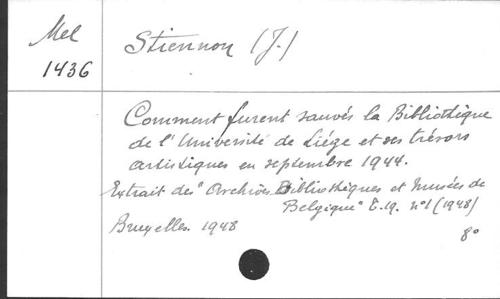 Mel
1436
Stiennon (J.)
Comment furent sauvés la Bibliothèque
de l'Université de Liége et ses trésors
artistiques en septembre 1944.
Extrait des "Archives Bibliothèques et Musées de
Belgique" t. 19. n°1 (1948)
Bruxelles. 1948
8°